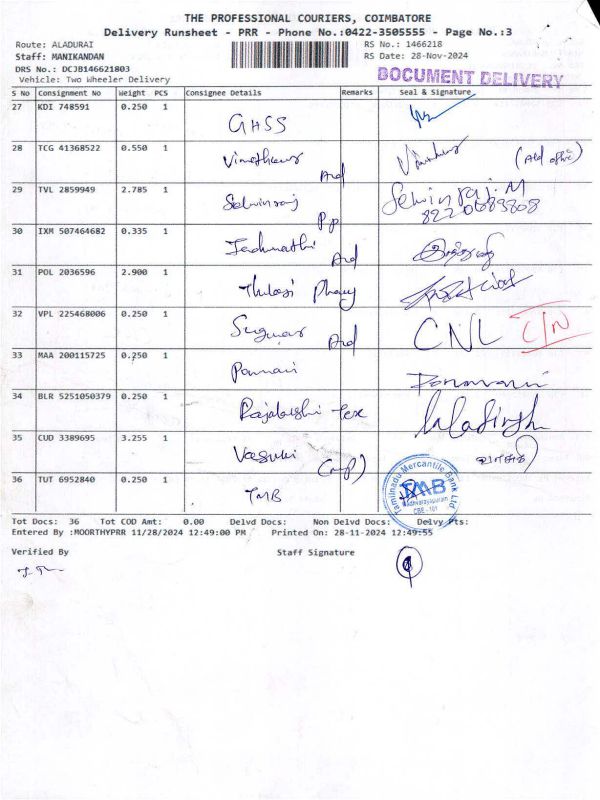 THE PROFESSIONAL COURIERS, COIMBATORE
Delivery Runsheet - PRR - Phone No.:0422-3505555 - Page No.:3
Route: ALADURAI RS No.: 1466218
Staff: MANIKANDAN RS Date: 28-Nov-2024
DRS No.: DCJB146621803
Vehicle: Two Wheeler Delivery DOCUMENT DELIVERY
S No Consignment No Weight PCS Consignee Details Remarks Seal & Signature
27 KDI 748591 0.250 1
GHSS
28 TCG 41368522 0.550 1
29 TVL 2859949 2.785 1 Selwinraj.M
Selwinraj 8220683808
30 IXM 507464682 0.335 1
31 POL 2036596 2.900 1
Thulasi
32 VPL 225468006 0.250 1
Sugumar CNL
33 MAA 200115725 0.250 1
34 BLR 5251050379 0.250 1
35 CUD 3389695 3.255 1
Vasuki
36 TUT 6952840 0.250 1
TMB Tamilnadu Mercantile Bank Ltd. TMB CBE - 101
Tot Docs: 36 Tot COD Amt: 0.00 Delvd Docs: Non Delvd Docs: Delvy Pts:
Entered By :MOORTHYPRR 11/28/2024 12:49:00 PM Printed On: 28-11-2024 12:49:55
Verified By Staff Signature